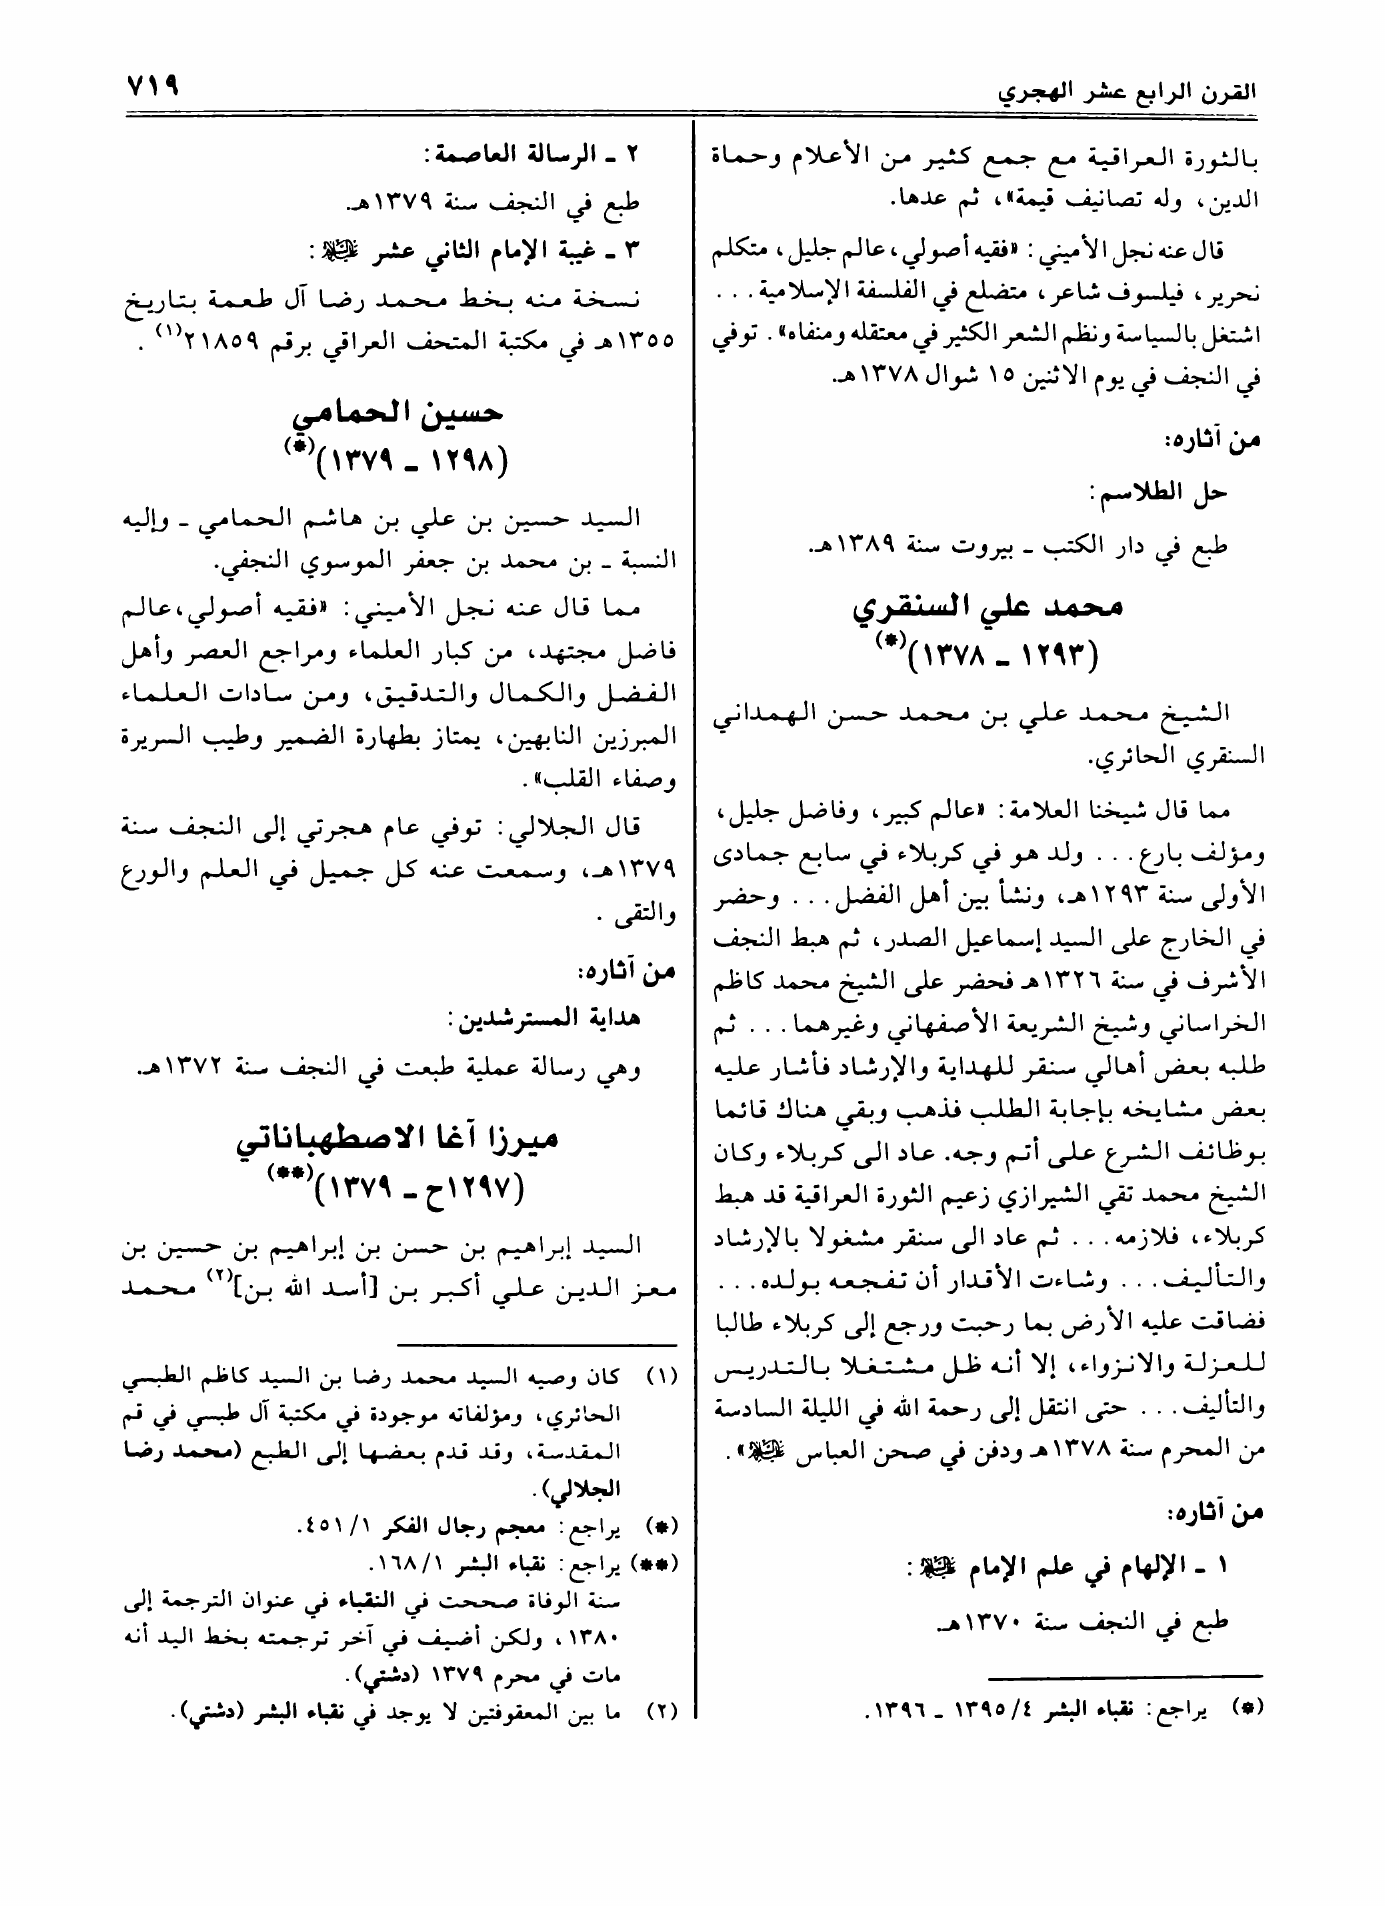 القرن الرابع عشر الهجري
٧١٩
بالثورة العراقية مع جمع كثير من الأعلام وحماة
الدين، وله تصانيف قيمة»، ثم عدها.
قال عنه نجل الأميني: «فقيه أصولي، عالم جليل، متكلم
نحرير، فيلسوف شاعر، متضلع في الفلسفة الإسلامية...
اشتغل بالسياسة ونظم الشعر الكثير في معتقله ومنفاه». توفي
في النجف في يوم الاثنين ١٥ شوال ١٣٧٨هـ.
من آثاره:
حل الطلاسم:
طبع في دار الكتب ـ بيروت سنة ١٣٨٩هـ.
محمد علي السنقري
(١٢٩٣ ـ ١٣٧٨)(*)
الشيخ محمد علي بن محمد حسن الهمداني
السنقري الحائري.
مما قال شيخنا العلامة: «عالم كبير، وفاضل جليل،
ومؤلف بارع... ولد هو في كربلاء في سابع جمادى
الأولى سنة ١٢٩٣هـ، ونشأ بين أهل الفضل... وحضر
في الخارج على السيد إسماعيل الصدر، ثم هبط النجف
الأشرف في سنة ١٣٢٦هـ فحضر على الشيخ محمد كاظم
الخراساني وشيخ الشريعة الأصفهاني وغيرهما... ثم
طلبه بعض أهالي سنقر للهداية والإرشاد فأشار عليه
بعض مشايخه بإجابة الطلب فذهب وبقي هناك قائما
بوظائف الشرع على أتم وجه. عاد الى كربلاء وكان
الشيخ محمد تقي الشيرازي زعيم الثورة العراقية قد هبط
كربلاء، فلازمه... ثم عاد الى سنقر مشغولا بالإرشاد
والتأليف... وشاءت الأقدار أن تفجعه بولده...
فضاقت عليه الأرض بما رحبت ورجع إلى كربلاء طالبا
للعزلة والانزواء، إلا أنه ظل مشتغلا بالتدريس
والتأليف... حتى انتقل إلى رحمة الله في الليلة السادسة
من المحرم سنة ١٣٧٨هـ ودفن في صحن العباس».
من آثاره:
١ ـ الإلهام في علم الإمام:
طبع في النجف سنة ١٣٧٠هـ.
(*) يراجع: نقباء البشر ٤/ ١٣٩٥ ـ ١٣٩٦.
٢ ـ الرسالة العاصمة:
طبع في النجف سنة ١٣٧٩هـ.
٣ ـ غيبة الإمام الثاني عشر:
نسخة منه بخط محمد رضا آل طعمة بتاريخ
١٣٥٥هـ في مكتبة المتحف العراقي برقم ٢١٨٥٩(١).
حسين الحمامي
(١٢٩٨ ـ ١٣٧٩)(*)
السيد حسين بن علي بن هاشم الحمامي ـ وإليه
النسبة ـ بن محمد بن جعفر الموسوي النجفي.
مما قال عنه نجل الأميني: «فقيه أصولي، عالم
فاضل مجتهد، من كبار العلماء ومراجع العصر وأهل
الفضل والكمال والتدقيق، ومن سادات العلماء
المبرزين النابهين، يمتاز بطهارة الضمير وطيب السريرة
وصفاء القلب».
قال الجلالي: توفي عام هجرتي إلى النجف سنة
١٣٧٩هـ، وسمعت عنه كل جميل في العلم والورع
والتقى.
من آثاره:
هداية المسترشدين:
وهي رسالة عملية طبعت في النجف سنة ١٣٧٢هـ.
ميرزا آغا الاصطهباناتي
(١٢٩٧ح ـ ١٣٧٩)(**)
السيد إبراهيم بن حسن بن إبراهيم بن حسين بن
معز الدين علي أكبر بن [أسد الله بن](٢) محمد
(١) كان وصيه السيد محمد رضا بن السيد كاظم الطبسي
الحائري، ومؤلفاته موجودة في مكتبة آل طبسي في قم
المقدسة، وقد قدم بعضها إلى الطبع (محمد رضا
الجلالي).
(*) يراجع: معجم رجال الفكر ١/ ٤٥١.
(**) يراجع: نقباء البشر ١/ ١٦٨.
سنة الوفاة صححت في النقباء في عنوان الترجمة إلى
١٣٨٠، ولكن أضيف في آخر ترجمته بخط اليد أنه
مات في محرم ١٣٧٩ (دشتي).
(٢) ما بين المعقوفتين لا يوجد في نقباء البشر (دشتي).